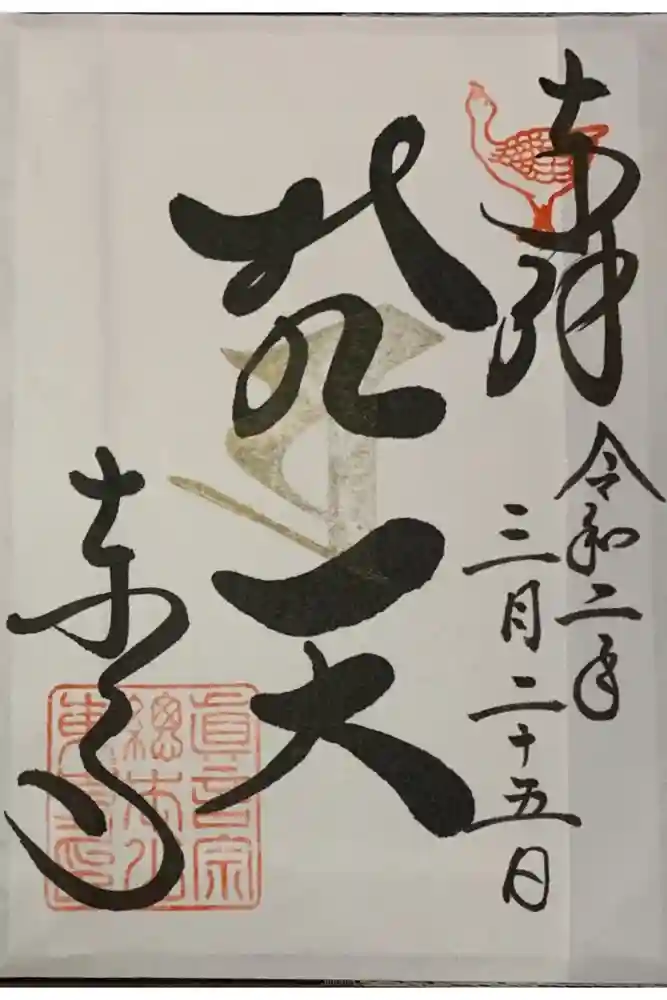 奉拝
令和二年
三月二十五日
梵天
東寺
眞言宗
總本山
東寺印